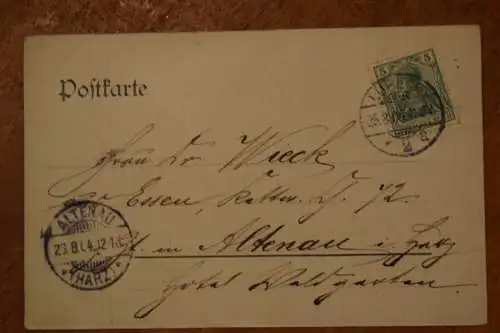 Postkarte
5 5
Frau Dr Wieck
Essen, Kettw. Ch. 72
z. Zt. in Altenau i. Harz
Hotel Waldgarten
ALTENAU
23.8.04.12-1
*(HARZ)*